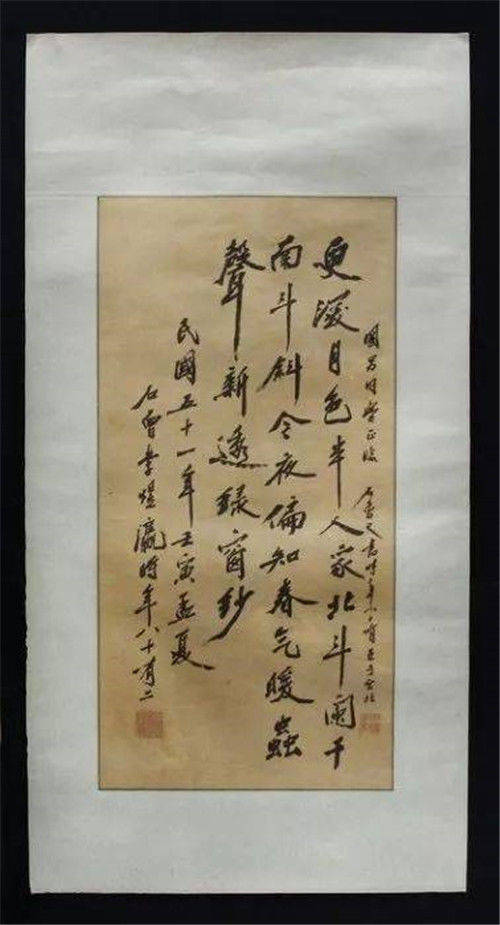 國昌同學正
石曾又書時年
更深月色半人家北斗闌干
南斗斜今夜偏知春气暖蟲
聲新透綠窗紗
民國五十一年壬寅孟夏
石曾李煜瀛時年八十有二